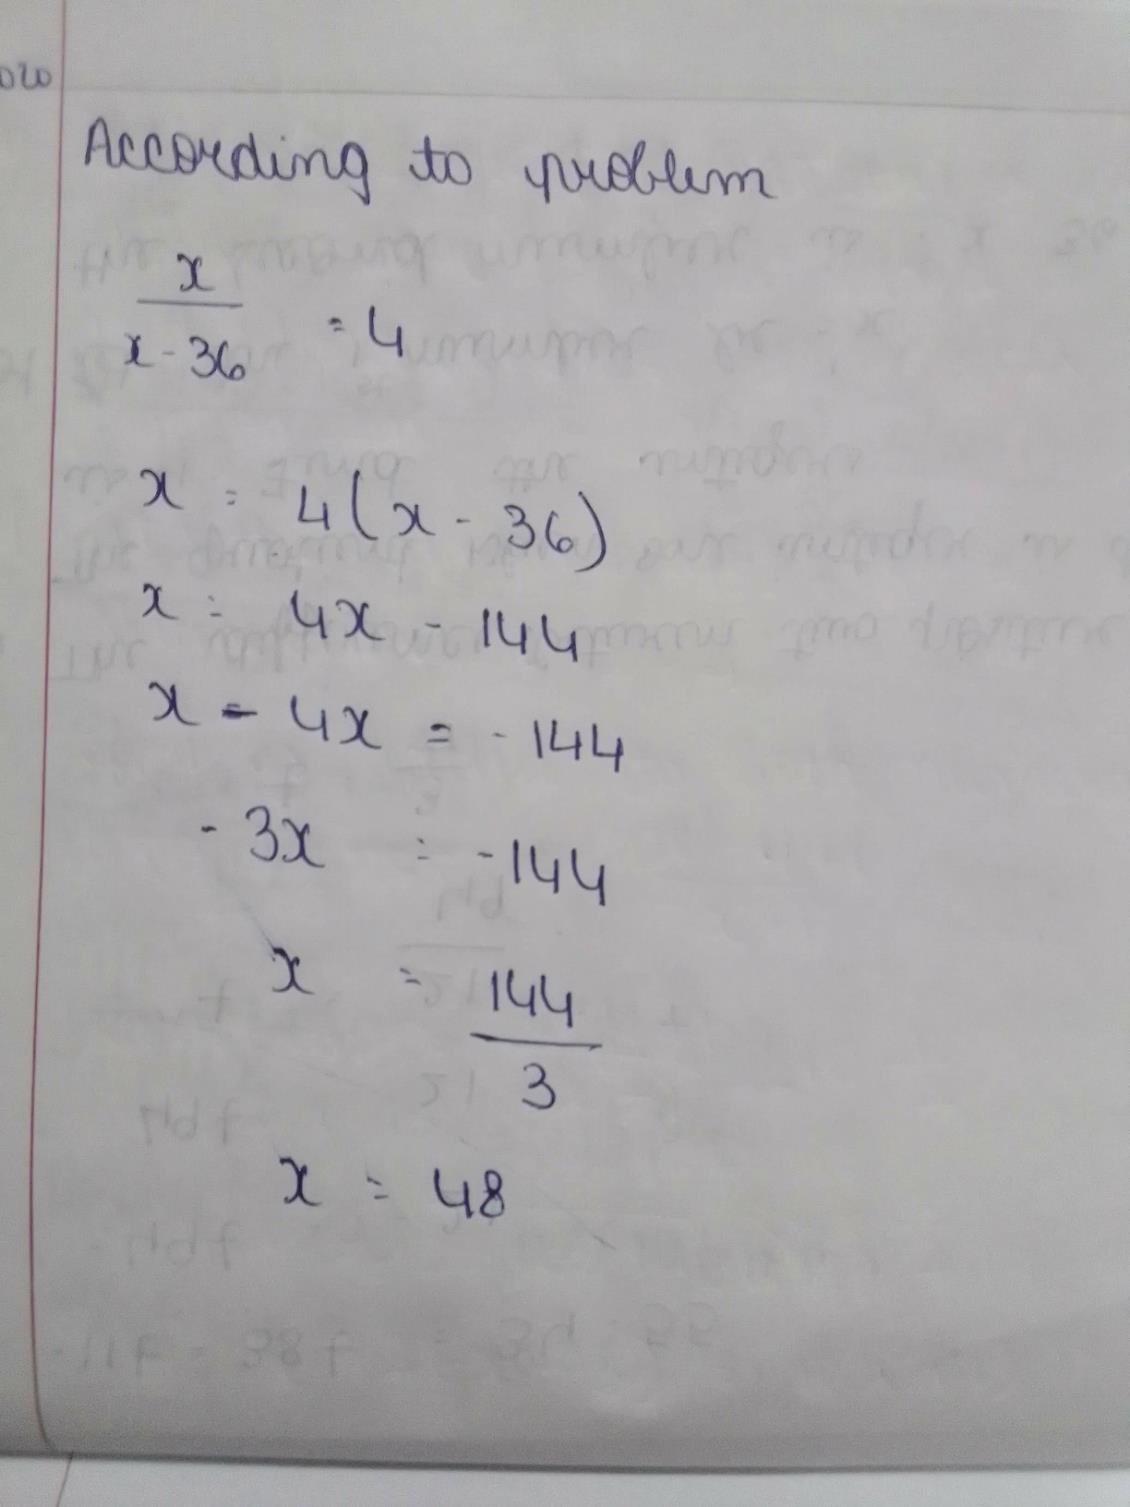 020
According to problem
x
x - 36 = 4
x = 4(x - 36)
x = 4x - 144
x - 4x = - 144
- 3x = - 144
x = 144
3
x = 48